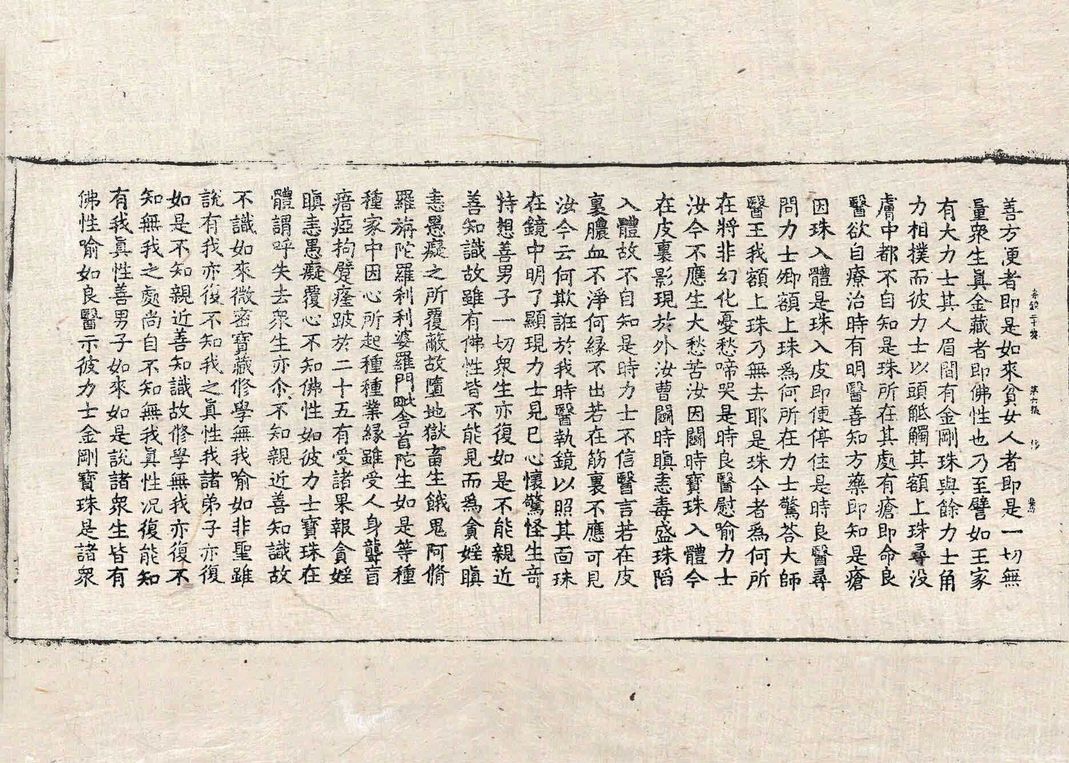 善方便者即是如來貧女人者即是一切無
量衆生眞金藏者即佛性也乃至譬如王家
有大力士其人眉間有金剛珠與餘力士角
力相撲而彼力士以頭觝觸其額上珠尋没
膚中都不自知是珠所在其處有瘡即命良
醫欲自療治時有明醫善知方藥即知是瘡
因珠入體是珠入皮即便停住是時良醫尋
問力士卿額上珠爲何所在力士驚荅大師
醫王我額上珠乃無去耶是珠今者爲何所
在將非幻化憂愁啼哭是時良醫慰喻力士
汝今不應生大愁苦汝因鬪時寶珠入體今
在皮裏影現於外汝曹鬪時瞋恚毒盛珠陷
入體故不自知是時力士不信醫言若在皮
裏膿血不淨何緣不出若在筋裏不應可見
汝今云何欺誑於我時醫執鏡以照其面珠
在鏡中明了顯現力士見已心懷驚怪生奇
特想善男子一切衆生亦復如是不能親近
善知識故雖有佛性皆不能見而爲貪婬瞋
恚愚癡之所覆蔽故墮地獄畜生餓鬼阿脩
羅旃陀羅刹利婆羅門毗舍首陀生如是等種
種家中因心所起種種業緣雖受人身聾盲
瘖瘂拘躄癃跛於二十五有受諸果報貪婬
瞋恚愚癡覆心不知佛性如彼力士寶珠在
體謂呼失去衆生亦尒不知親近善知識故
不識如來微密寶藏修學無我喻如非聖雖
說有我亦復不知我之眞性我諸弟子亦復
如是不知親近善知識故修學無我亦復不
知無我之處尚自不知無我眞性况復能知
有我眞性善男子如來如是說諸衆生皆有
佛性喻如良醫示彼力士金剛寶珠是諸衆